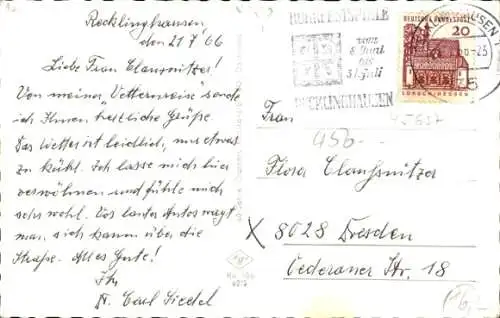 Recklinghausen,
den 21.7.66
Liebe Frau Claußnitzer!
Von meiner "Vetternreise sende
ich Ihnen herzliche Grüße.
Das Wetter ist leidlich, nur etwas
zu kühl. Ich lasse mich hier
verwöhnen und fühle mich
sehr wohl. Vor lauter Autos wagt
man sich kaum über die
Straße. Alles Gute!
Ihr
Carl Siedel
RUHRFESTSPIELE
vom
bis
31. Juli
RECKLINGHAUSEN
DEUTSCHE BUNDESPOST
20
LORSCH/HESSEN
Frau
456.-
Flora Claußnitzer
X 8028 Dresden
Oederaner Str. 18
16,-